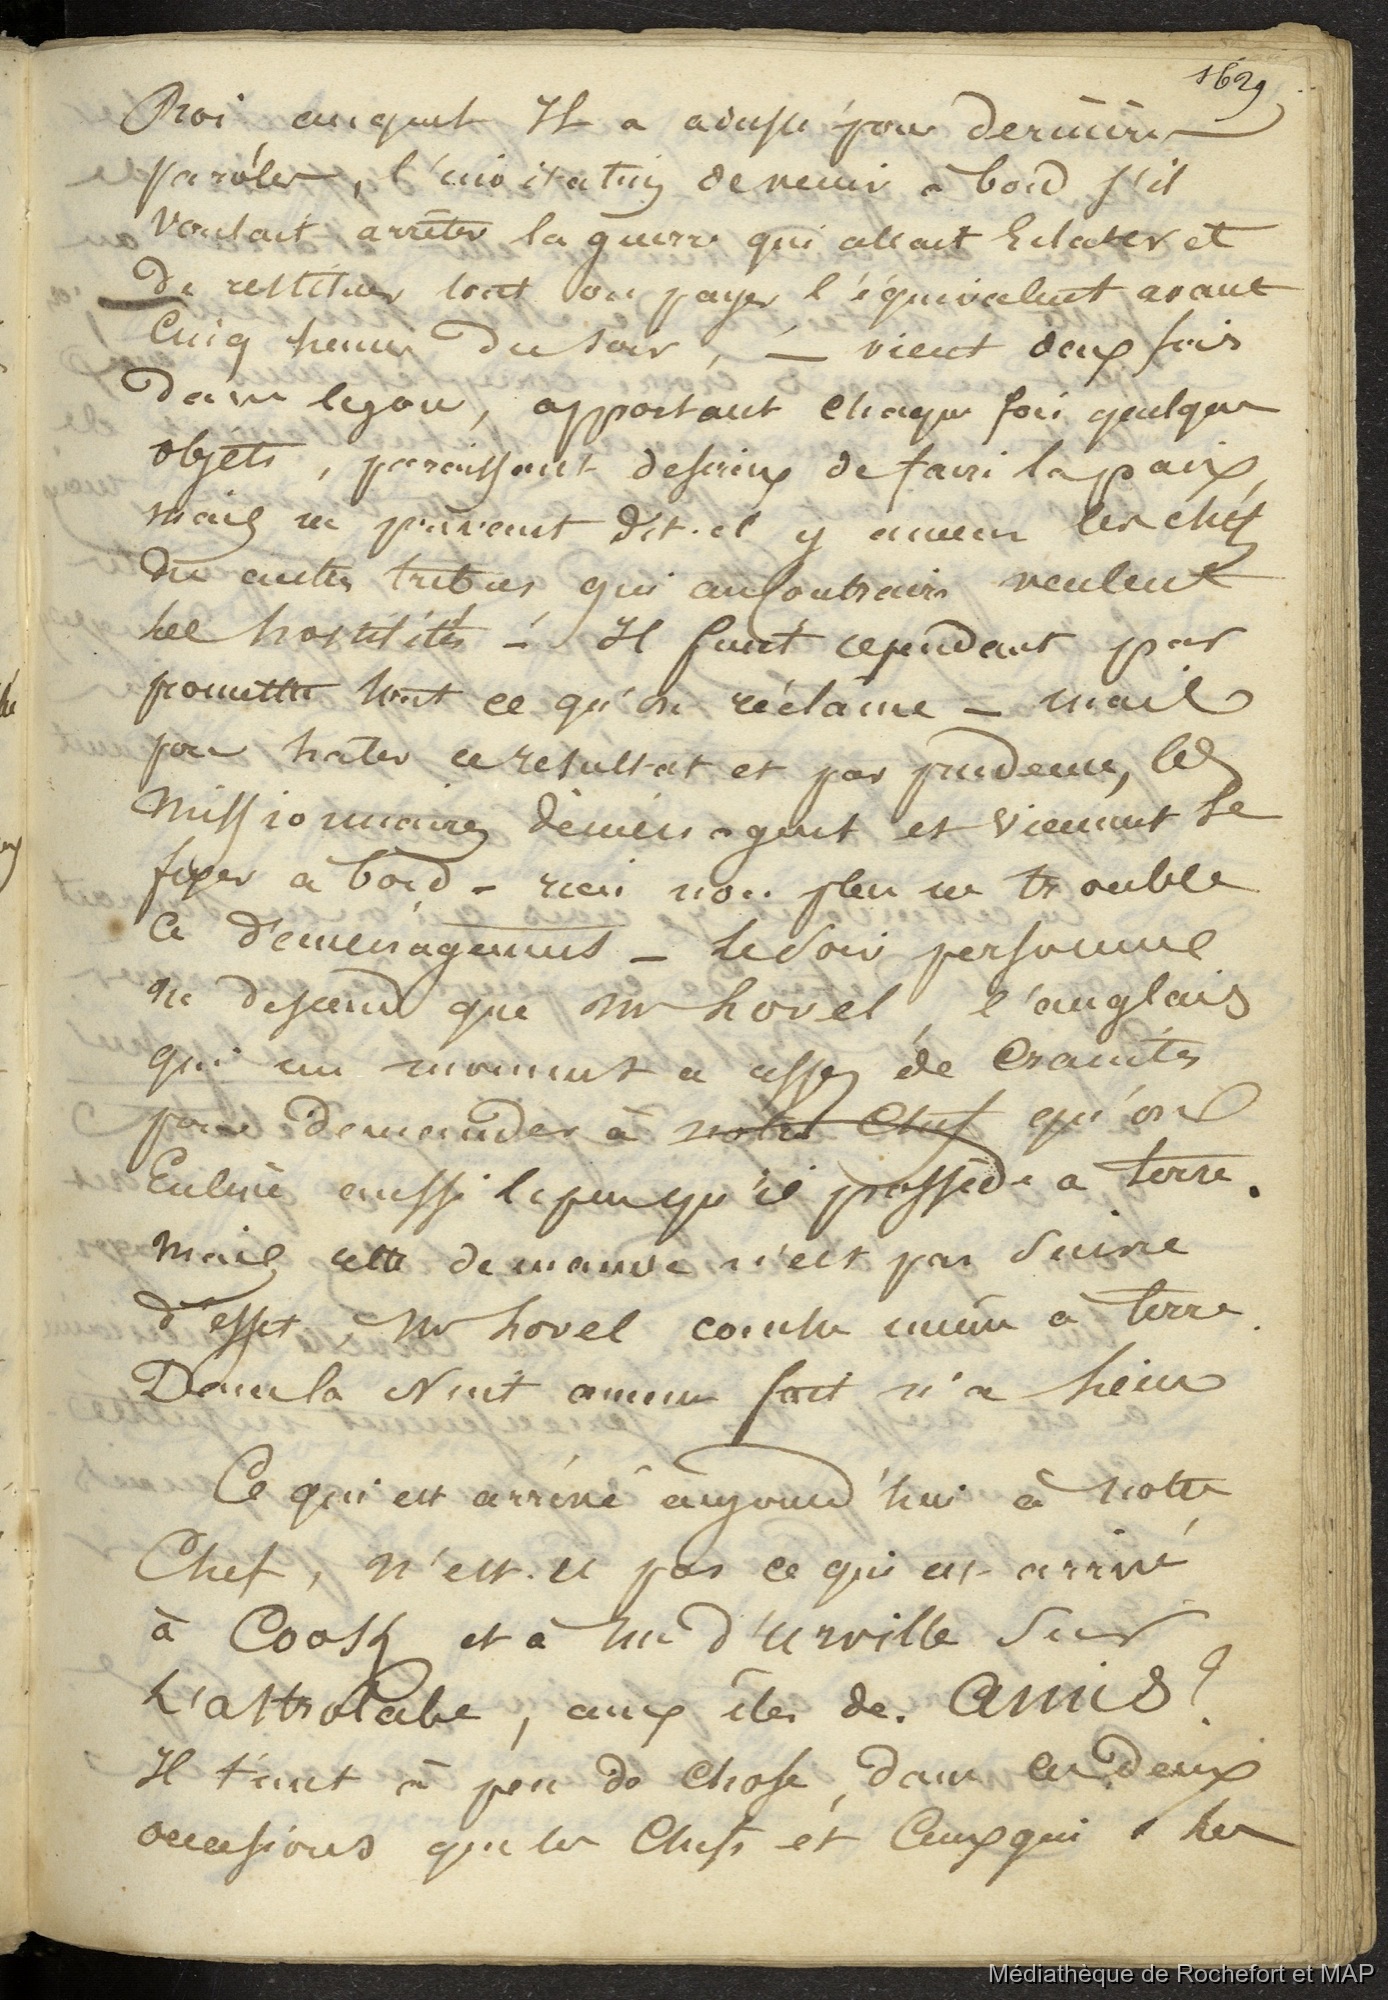 1629
Roi auquel Il a adressé pour dernières
paroles, l'invitation de venir à bord s'il
voulait arrêter la guerre qui allait Eclater et
De restituer tout ou payer l'équivalent avant
Cinq heures Du soir, — vient deux fois
Dans le jour, apportant chaque fois quelques
objets, paraissant desireux de faire la paix,
mais ne pouvant dit-il y amener les chefs
Des autres tribus qui au Contraire veulent
les hostilités – Il finit cependant par
promettre tout ce qu'on réclame – mais
pour hater ce resultat et par prudence, les
Missionnaires déménagent et viennent se
fixer à bord – rien non plus ne trouble
Ce déménagement – le soir personne
ne descend que Mr hovel, l'anglais
qui un moment a assez de Craintes
pour demander à notre Chef qu'on
Enlève aussi le peu qu'il possède a terre.
Mais cette demande n'est pas Suivie
d'effet, Mr hovel couche même a terre.
Dans la Nuit aucun fait n'a lieu
Ce qui est arrivé aujourd'hui à notre
Chef, n'est-ce pas ce qui est arrivé
à Cook et à Mr d'urville Sur
L'astrolabe, aux iles des Amis?
Il tint à peu de Chose, dans les deux
occasions que les Chefs et Ceux qui les
Médiathèque de Rochefort et MAP